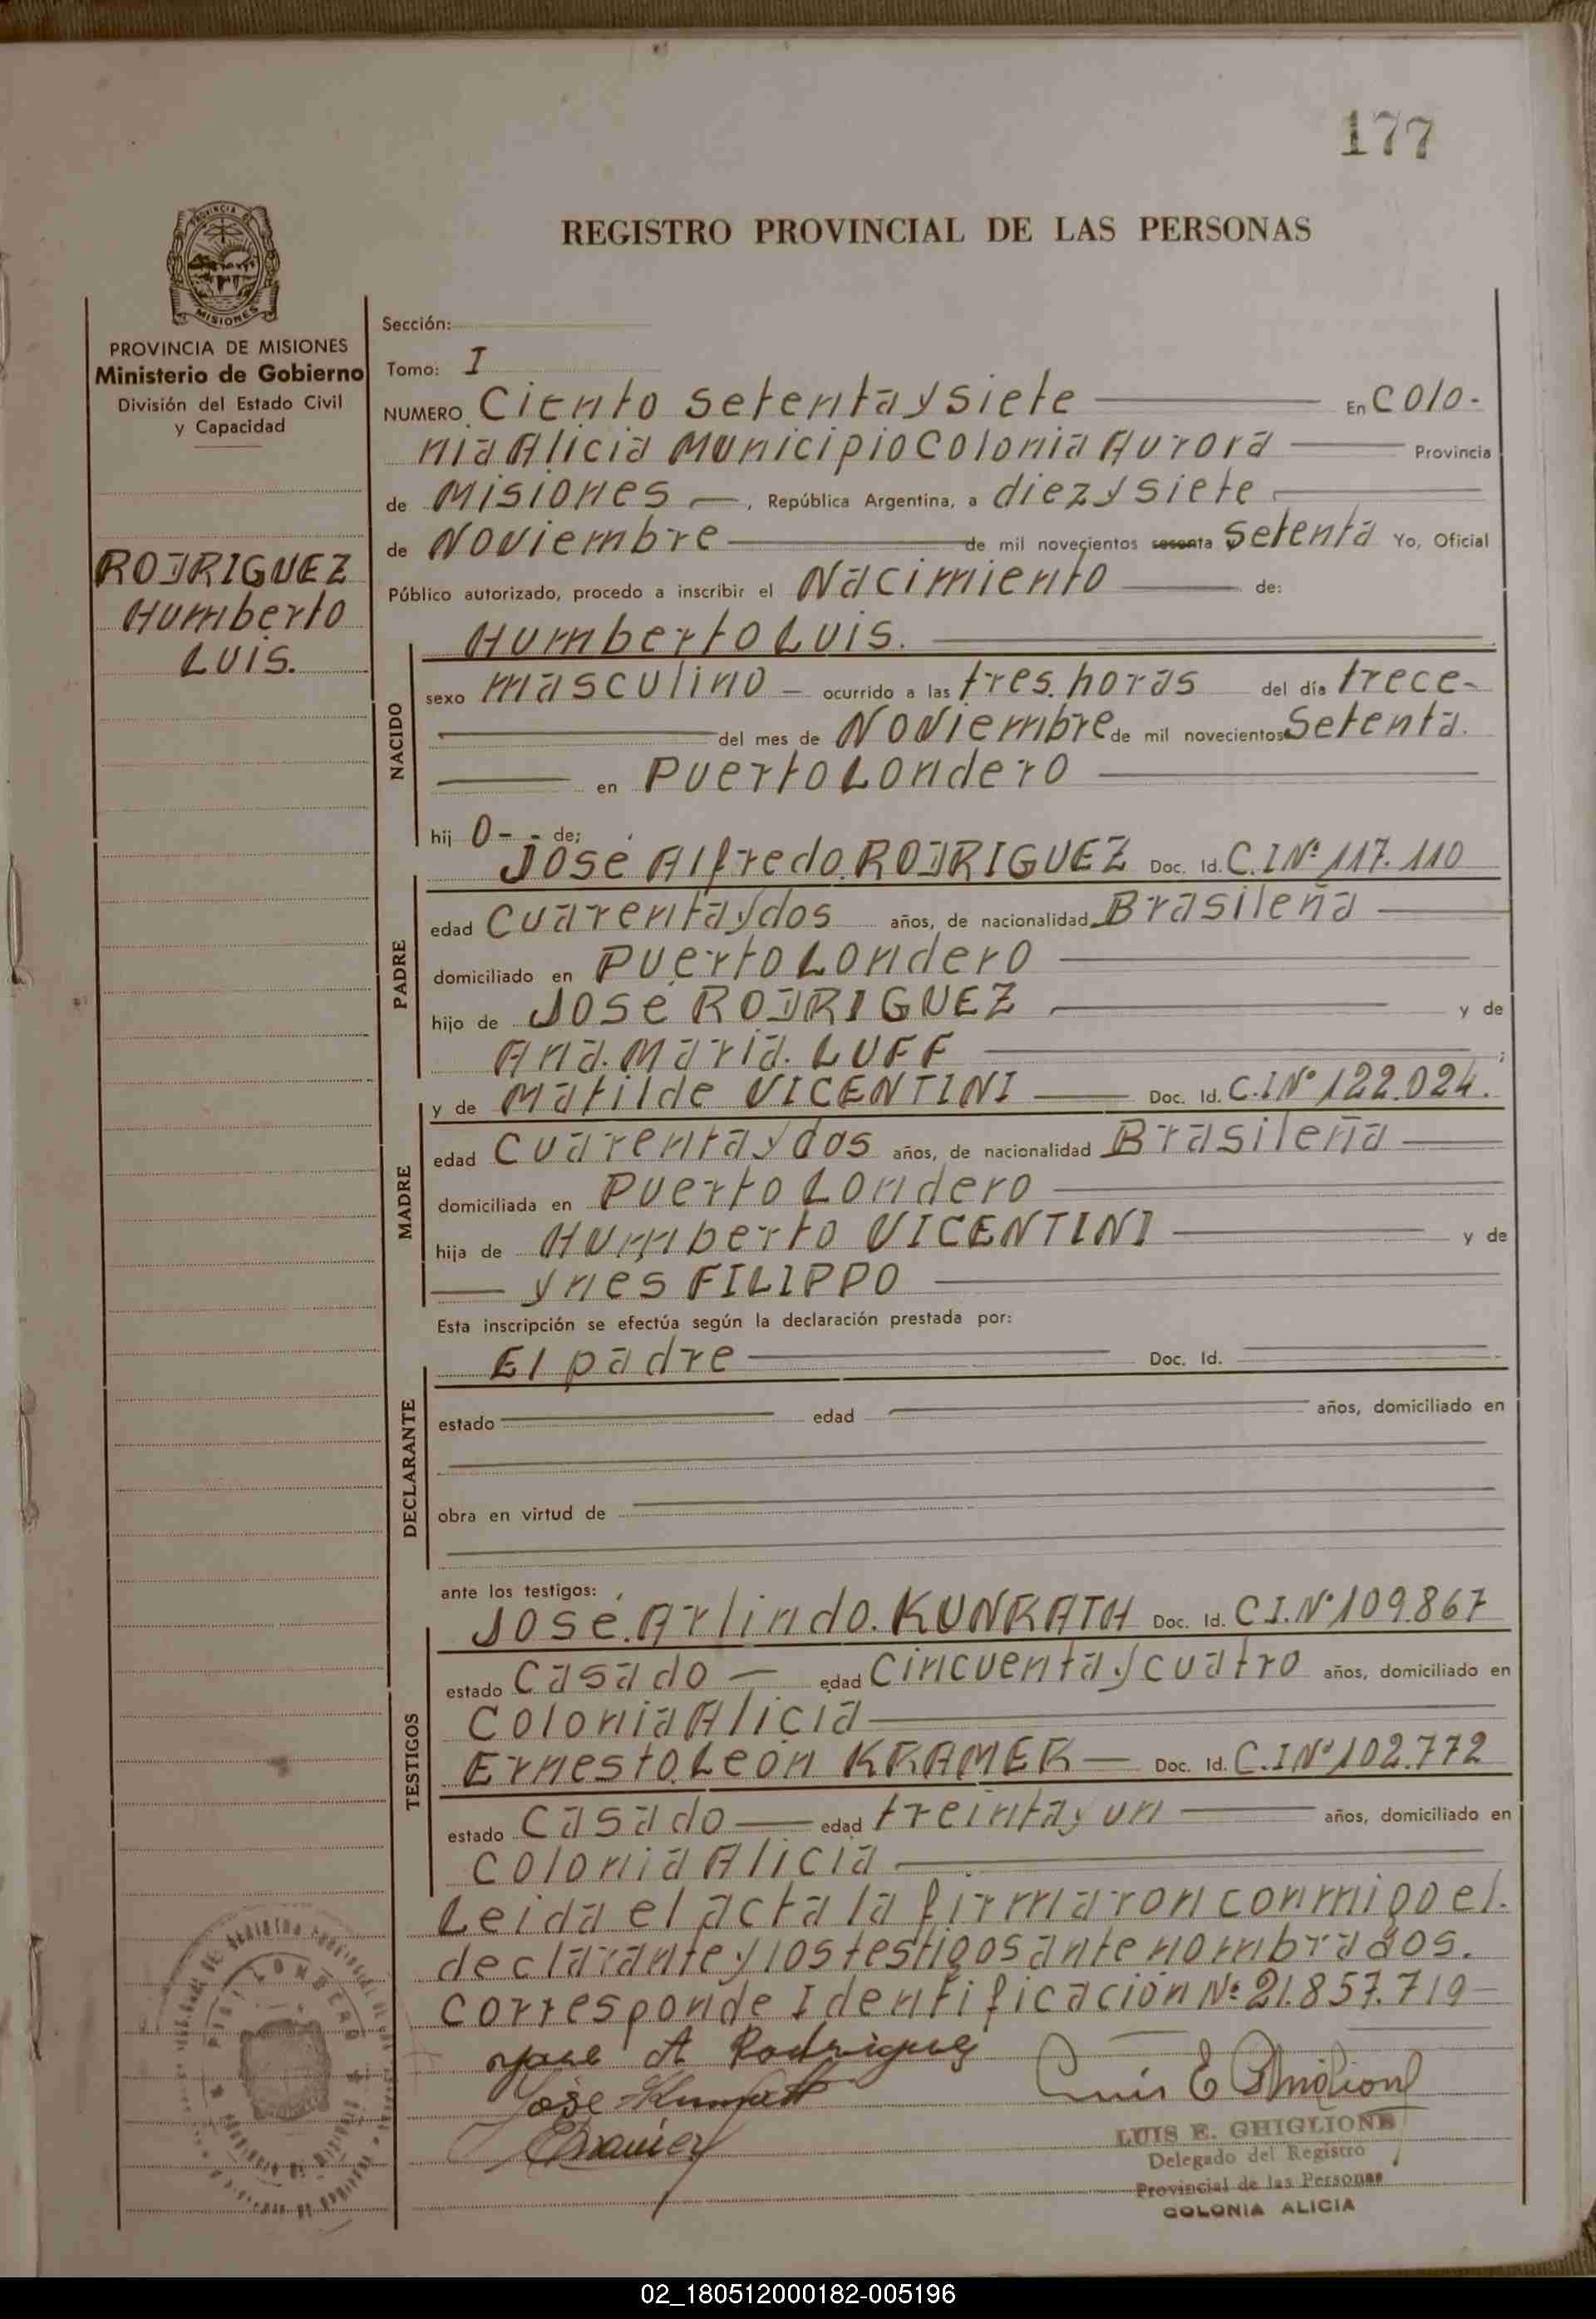 177
REGISTRO PROVINCIAL DE LAS PERSONAS
PROVINCIA DE MISIONES
Ministerio de Gobierno
División del Estado Civil
y Capacidad
RODRIGUEZ
Humberto
LUIS.
Sección:
Tomo: I
NUMERO Ciento setenta y siete En Colo-
nia Alicia Municipio Colonia Aurora Provincia
de Misiones, República Argentina, a diez y siete
de Noviembre de mil novecientos sesenta y setenta Yo, Oficial
Público autorizado, procedo a inscribir el Nacimiento de:
NACIDO
Humberto Luis.
sexo masculino ocurrido a las tres horas del día trece-
del mes de Noviembre de mil novecientos setenta.
en Puerto Londero
hij o- de;
PADRE
José Alfredo RODRIGUEZ Doc. Id. C.I Nº 117.110
edad cuarenta y dos años, de nacionalidad Brasileña
domiciliado en Puerto Londero
hijo de José RODRIGUEZ y de
Ana Maria LUFF ;
MADRE
y de Matilde VICENTINI Doc. Id. C.I Nº 122.024.
edad cuarenta y dos años, de nacionalidad Brasileña
domiciliada en Puerto Londero
hija de Humberto VICENTINI y de
Ynes FILIPPO
Esta inscripción se efectúa según la declaración prestada por:
DECLARANTE
El padre Doc. Id.
estado edad años, domiciliado en
obra en virtud de
ante los testigos:
TESTIGOS
José Arlindo KUNRATH Doc. Id. C.I. Nº 109.867
estado Casado edad Cincuenta y cuatro años, domiciliado en
Colonia Alicia
Ernesto León KRAMER Doc. Id. C.I Nº 102.772
estado Casado edad treinta y un años, domiciliado en
Colonia Alicia
Leida el acta la firmaron conmigo el
declarante y los testigos ante nombrados.
Corresponde Identificación Nº 21.857.719
Jose A Rodriguez
José Kunrath
EKramer
Luis E Ghiglione
LUIS E. GHIGLIONE
Delegado del Registro
Provincial de las Personas
COLONIA ALICIA
02_180512000182-005196